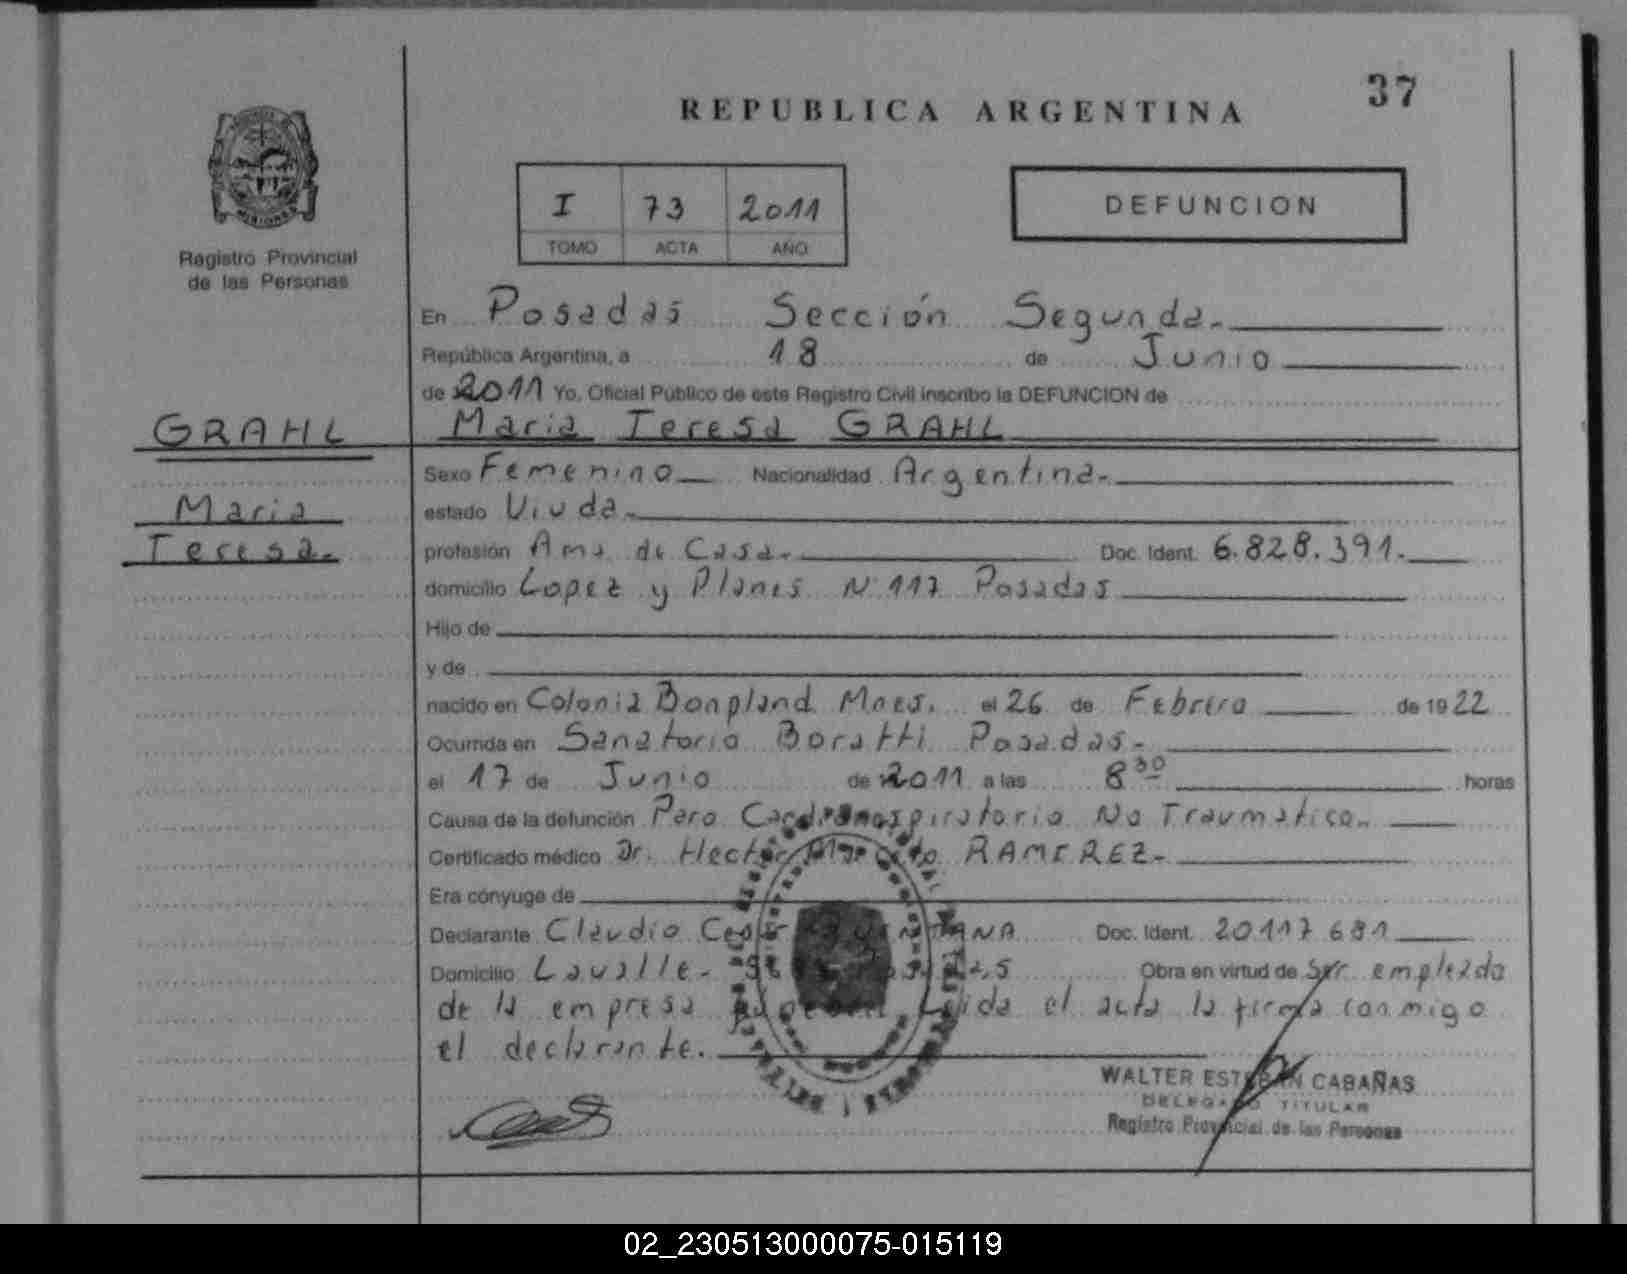 37
REPUBLICA ARGENTINA
I 73 2011
TOMO ACTA AÑO
DEFUNCION
MISIONES
Registro Provincial
de las Personas
En Posadas Sección Segunda.
República Argentina, a 18 de Junio
de 2011 Yo, Oficial Público de este Registro Civil inscribo la DEFUNCION de
GRAHL
Maria Teresa GRAHL
Maria
Teresa.
Sexo Femenino Nacionalidad Argentina.
estado Viuda.
profesión Ama de Casa. Doc. Ident. 6.828.391.
domicilio Lopez y Planes N 117 Posadas
Hijo de
y de
nacido en Colonia Bonpland Mnes. el 26 de Febrero de 1922
Ocurrida en Sanatorio Boratti Posadas.
el 17 de Junio de 2011 a las 8 30 horas
Causa de la defunción Paro Cardiorrespiratorio No Traumatico.
Certificado médico Dr. Hector RAMIREZ.
Era cónyuge de
Declarante Claudio Cesar Doc. Ident. 20117681
Domicilio Lavalle. Obra en virtud de Ser empleado
de la empresa Leida el acta la firma conmigo
el declarante.
WALTER ESTEBAN CABAÑAS
DELEGADO TITULAR
Registro Provincial de las Personas
02_230513000075-015119